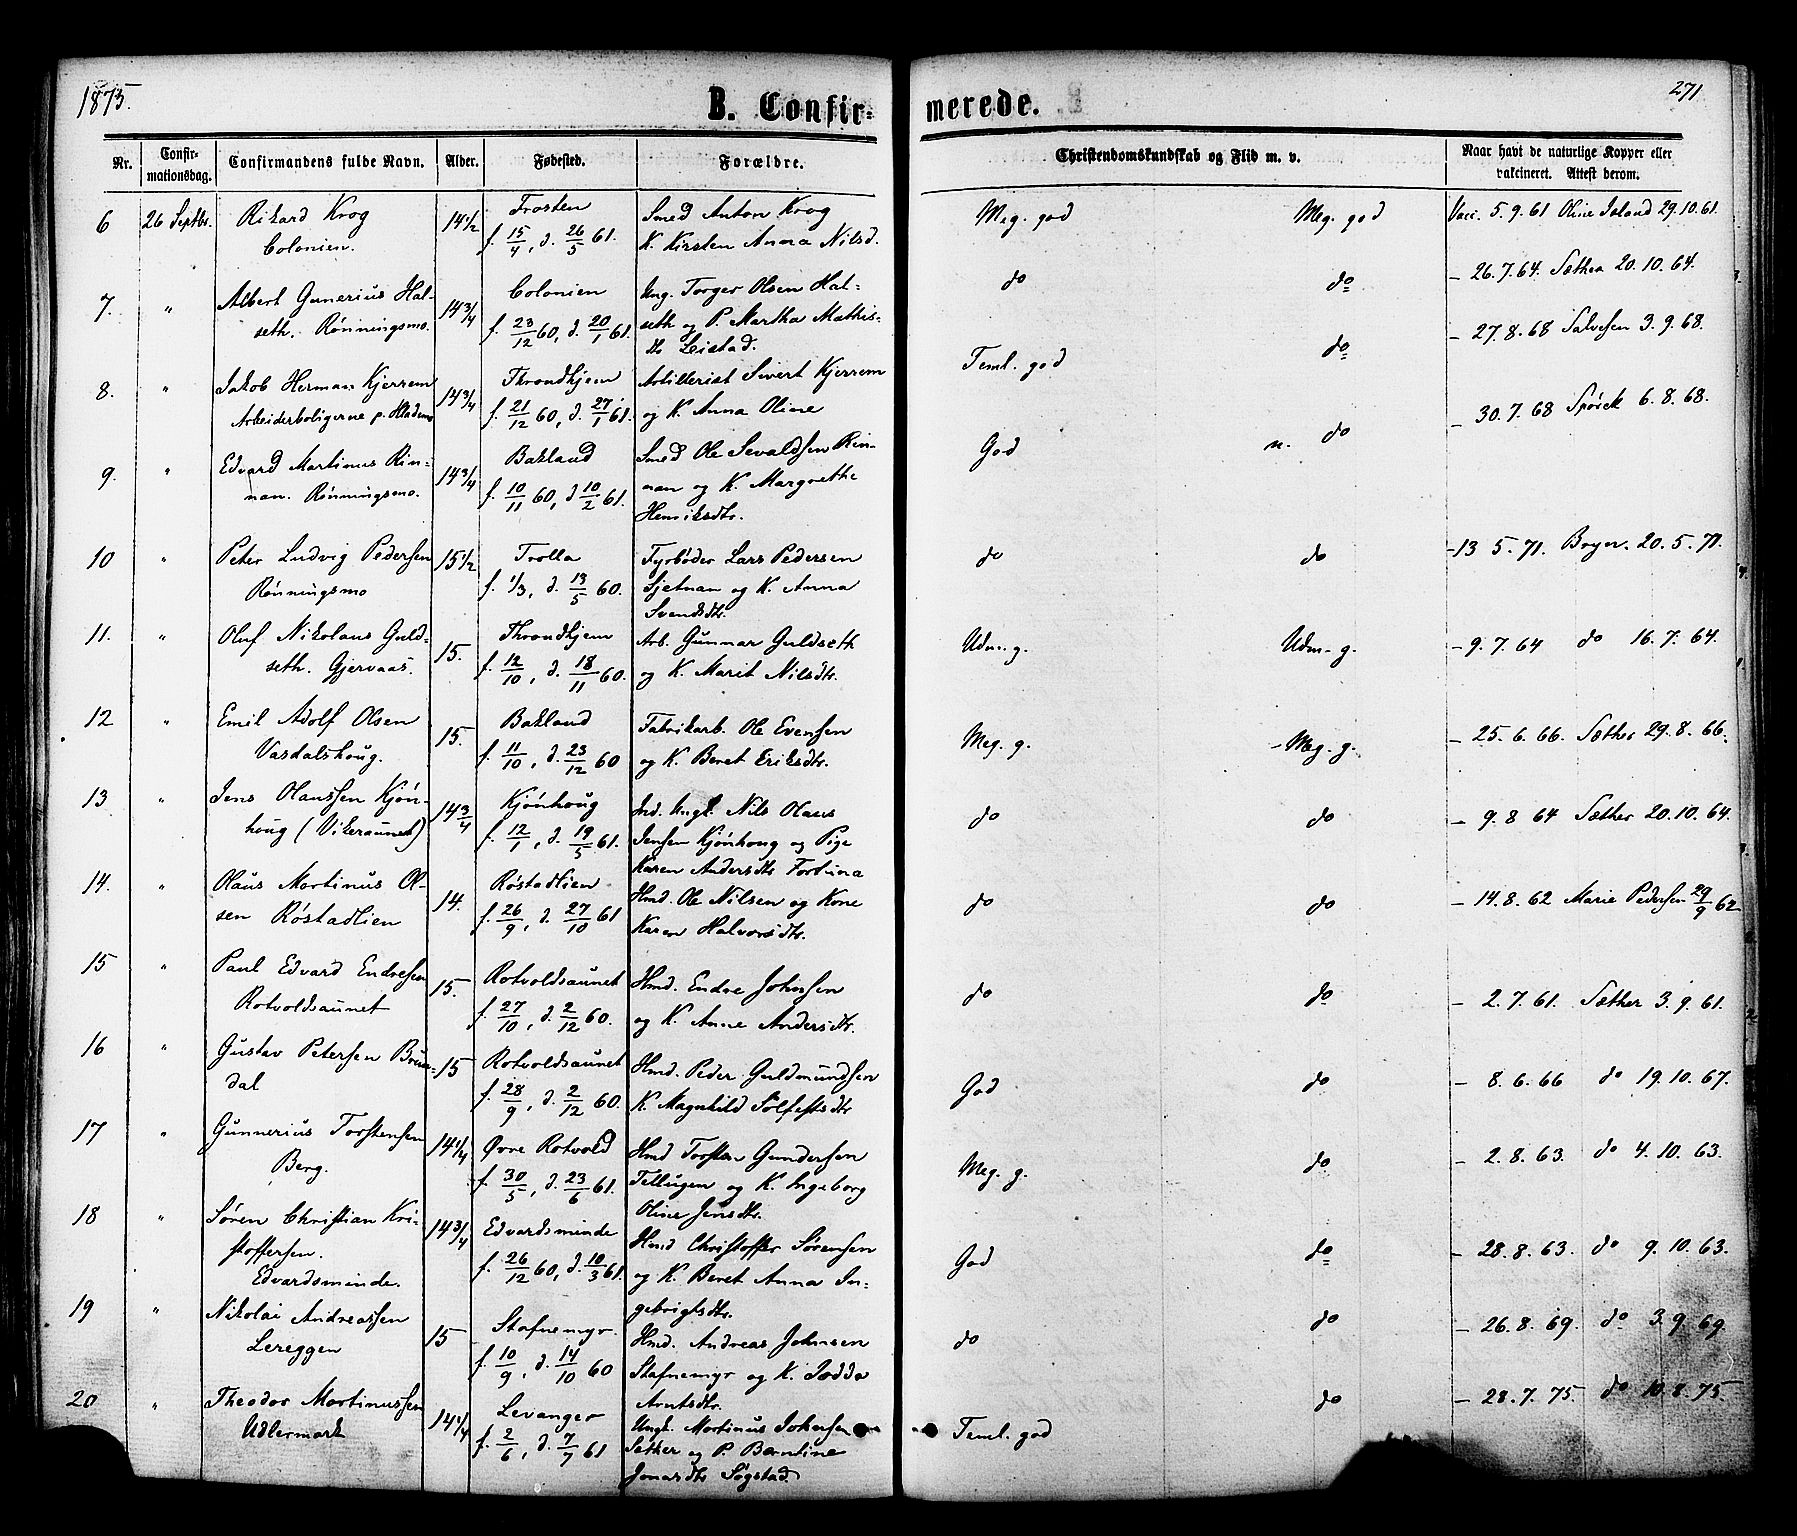 1875.
B. Confirmerede.
271
Nr. Confirmationsdag. Confirmandens fulde Navn. Alder. Fødested. Forældre. Christendomskundskab og Flid m. v. Naar havt de naturlige Kopper eller vakcineret. Attest derom.
6 26 Septbr. Rikard Krog 14 1/2 Frosten Smed Anton Krog Meg. god Meg. god Vacc. 5.9.61 Oline Island 29.10.61.
Colonien. f. 15/4, d. 26/5 61. K. Kirsten Anna Nilsd.
7. " Albert Gunerius Hal- 14 3/4 Colonien Ung. Torger Olsen Hal- do do – 26.7.64. Sæther 20.10.64.
seth. Rønningsmo. f. 23/12 60, d. 20/1 61. seth og P. Martha Mathis-
dtr Leistad.
8. " Jakob Herman Kjerrem 14 3/4 Throndhjem Artillerist Sivert Kjerrem Teml. god do – 27.8.68 Salvesen 3.9.68.
Arbeiderboligerne p. Hladems f. 21/12 60, d. 27/1 61. og K. Anna Oline
9. " Edvard Martinus Rin- 14 3/4 Bakland Smed Ole Sevaldsen Rin- God n. do – 30.7.68 Spörck 6.8.68.
nan. Rønningsmo. f. 10/11 60, d 10/2 61. nan og K. Margrethe
Henriksdtr.
10 " Peter Ludvig Pedersen 15 1/2 Trolla Fyrbøder Lars Pedersen do do – 13 5.71. Boyer. 20.5.71.
Rønningsmo f. 1/3, d. 13/5 60. Sjetnan og K. Anna
Svendsdtr.
11. " Oluf Nikolaus Guld- 15. Throndhjem Arb. Gunnar Guldseth Udm. g. Udm. g. – 9.7.64 do 16.7.64.
seth. Gjervaas. f. 12/10, d. 18/11 60. og K. Marit Nilsdtr.
12 " Emil Adolf Olsen 15. Bakland Fabrikarb. Ole Evensen Meg. g. – Meg. g. – 25.6.66. Sæther 29.8.66.
Vasdalshoug. f. 11/10, d. 23/12 60 og K. Beret Eriksdtr.
13 " Jens Olaussen Kjøn- 14 3/4 Kjønhoug Ind. Ungk. Nils Olaus do do – 9.8 64 Sæther 20.10.64.
houg (Vikeraunet) f. 12/1, d. 19/5 61. Jensen Kjønhoug og Pige
Karen Andersdtr Fortuna
14. " Olaus Martinus Ol- 14. Røstadlien Hmd. Ole Nilsen og Kone do do – 14.8.62 Marie Pedersen 29/9 62
sen Røstadlien f. 26/9, d. 27/10 61 Karen Halvorsdtr.
15 " Paul Edvard Endresen 15. Rotvoldsaunet Hmd. Endre Johnsen do do – 2.7.61. Sæther 3.9.61.
Rotvoldsaunet f. 27/10, d. 2/12 60. og K. Anne Andersdtr.
16 " Gustav Petersen Bruu- 15 Rotvoldsaunet Hmd. Peder Guldmundsen God do – 8.6.66 do 19.10.67.
dal f. 28/9, d. 2/12 60. K. Magnhild Sølfestsdtr
17 " Gunnerius Torstensen 14 1/4 Øvre Rotvold Hmd Torsten Gundersen Meg. g. do – 2.8.63. do 4.10.63.
Berg. f. 30/5, d. 23/6 61. Tellugen og K. Ingeborg
Oline Jensdtr.
18 " Søren Christian Kri- 14 3/4 Edvardsminde Hmd Christoffer Sørensen God do – 28.8.63. do 9.10.63.
stoffersen. f. 26/12 60, d. 10/3 61. og K. Beret Anna In-
Edvardsminde. gebrigtsdtr.
19 " Nikolai Andreassen 15 Stafnemyr. Hmd. Andreas Johnsen do do – 26.8.69. do 3.9.69.
Lereggen f. 10/9, d. 14/10 60 Stafnemyr og K. Jødde
Arntsdtr.
20 " Theodor Martinussen 14 1/4 Levanger Ungk. Martinus Johnsen Teml. god do – 28.7.75. do 10.8.75.
Udlermark f. 2/6, d. 7/7 61 Sæther og P. Berntine
Jonasdtr Søgstad.